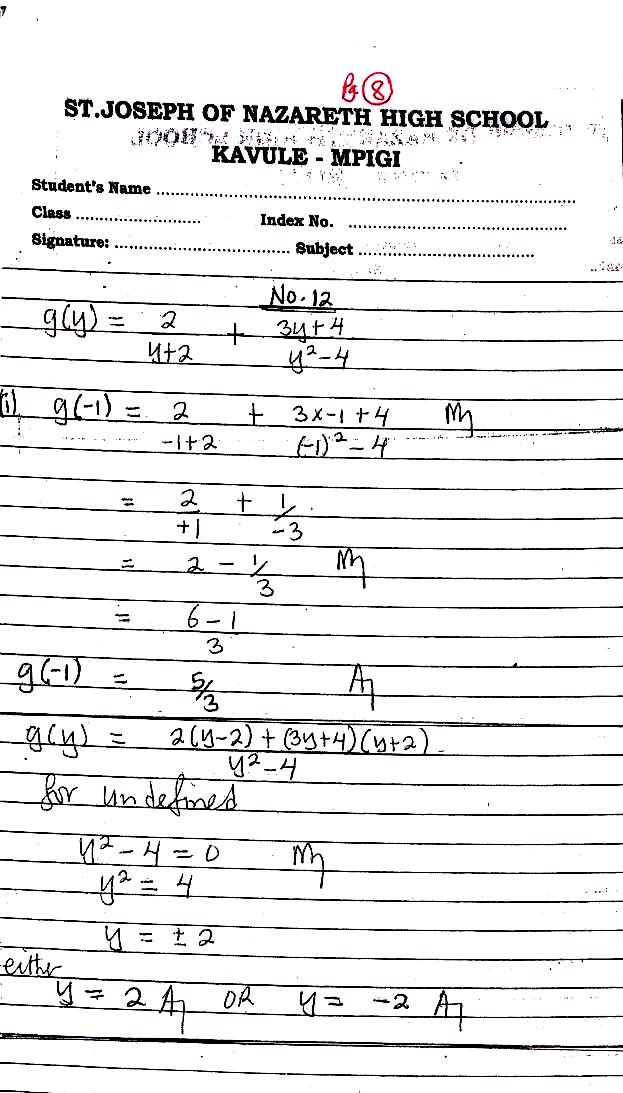 Pg 8
ST.JOSEPH OF NAZARETH HIGH SCHOOL
KAVULE - MPIGI
Student's Name ........................................
Class ........................ Index No. ........................
Signature: ........................ Subject ........................
No. 12
g(y) = 2/(y+2) + (3y+4)/(y²-4)
(i) g(-1) = 2/(-1+2) + (3x-1+4)/((-1)²-4) M1
= 2/+1 + 1/-3
= 2 - 1/3 M1
= (6-1)/3
g(-1) = 5/3 A1
g(y) = (2(y-2) + (3y+4)(y+2))/(y²-4)
for undefined
y²-4 = 0 M1
y² = 4
y = ±2
either
y = 2 A1 OR y = -2 A1